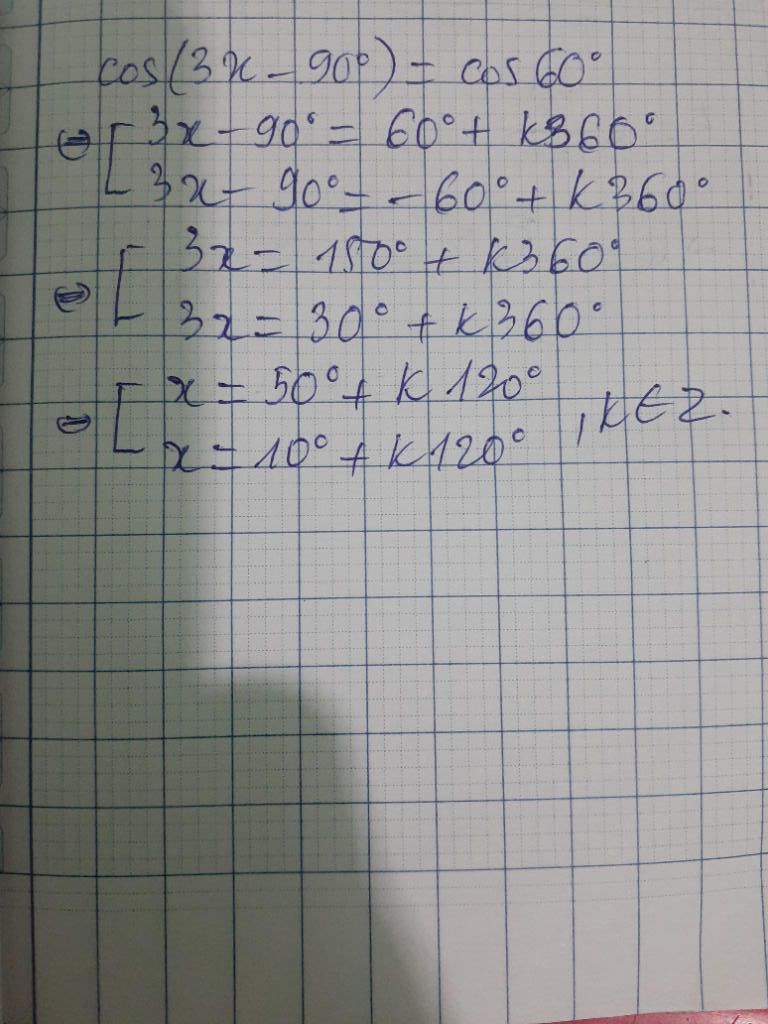 cos(3x - 90°) = cos 60°
⇔ [ 3x - 90° = 60° + k360°
3x - 90° = - 60° + k360°
⇔ [ 3x = 150° + k360°
3x = 30° + k360°
⇔ [ x = 50° + k120°
x = 10° + k120° , k ∈ Z.